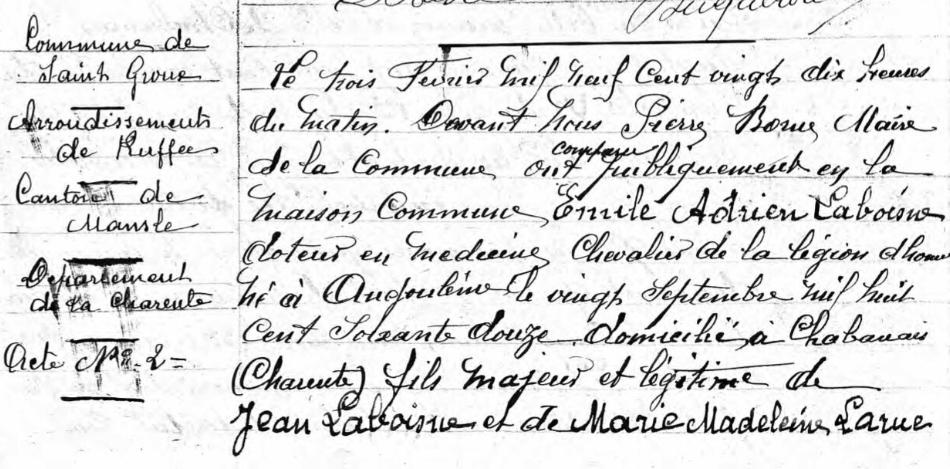 Commune de
Saint Groux
Arrondissement
de Ruffec
Canton de
Mansle
Département
de la Charente
Acte Nº 2=
Le trois Février mil neuf Cent vingt dix heures
du Matin. Devant nous Pierre Borne Maire
de la Commune ont comparu publiquement en la
maison Commune, Emile Adrien Laboisne
docteur en medecine, Chevalier de la légion d'honn
né à Angoulême le vingt Septembre mil huit
Cent Soixante douze, domicilié à Chabanais
(Charente) fils majeur et légitime de
Jean Laboisne et de Marie Madeleine Larue